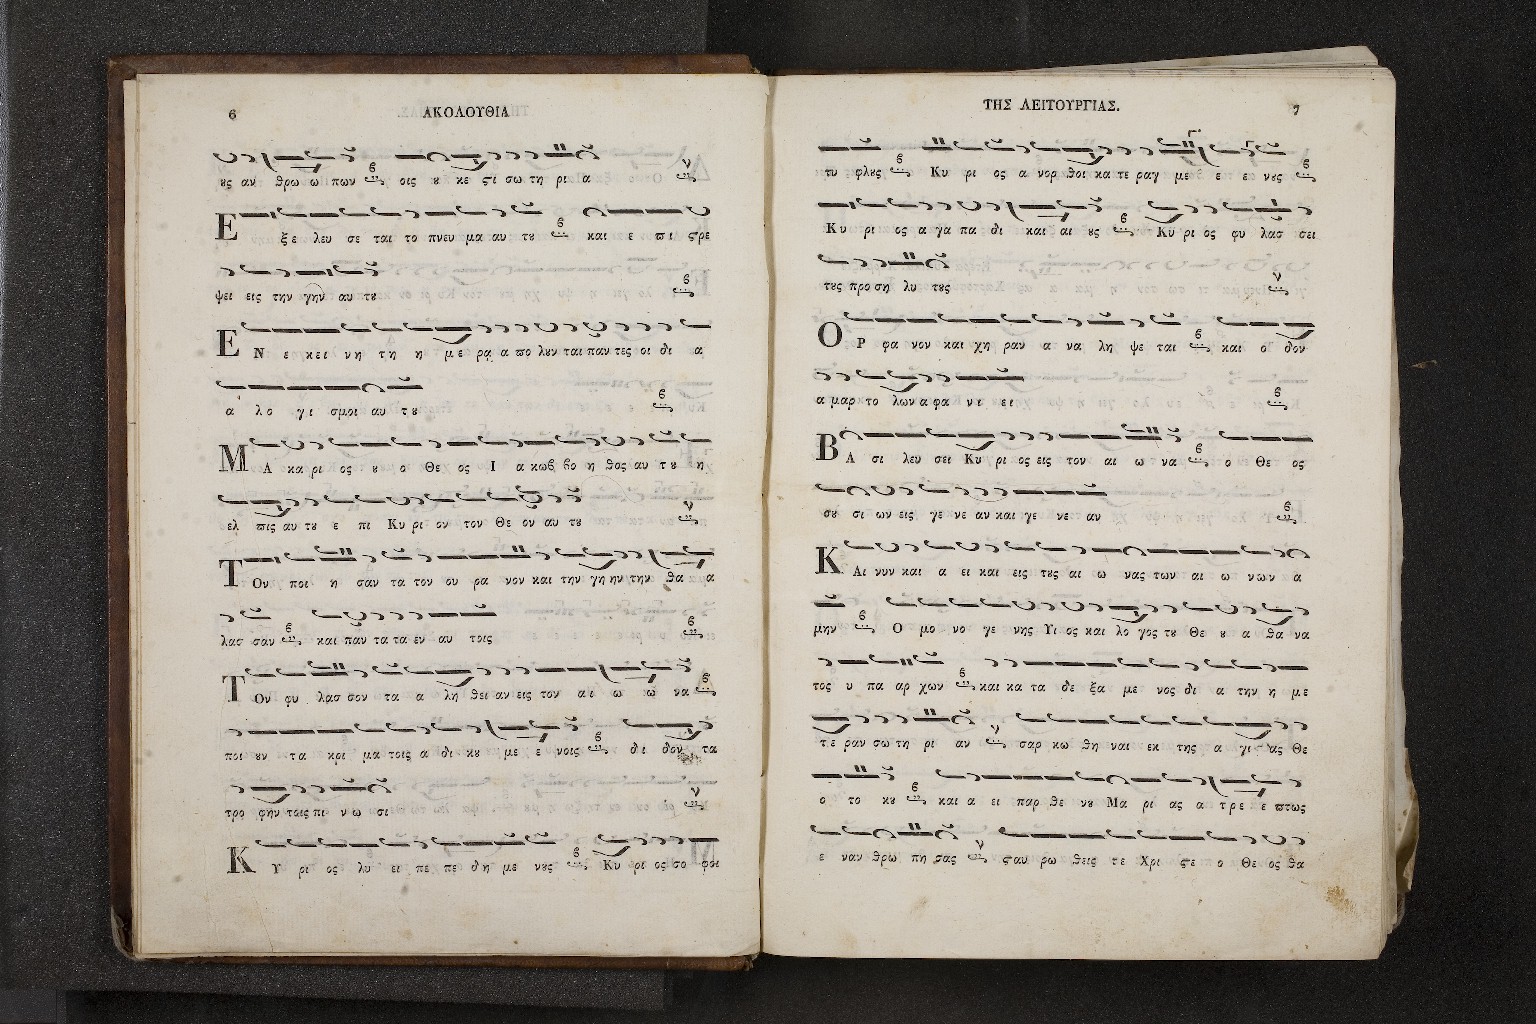 6 ΑΚΟΛΟΥΘΙΑ
ȣς αν θρω ω πων οις ȣ κε ϛι σω τη ρι α
Ε ξε λευ σε ται το πνευ μα αυ τȣ και ε πι ϛρε
ψει εις την γην αυ τȣ
ΕΝ ε κει νη τη η με ρᾳ α πο λȣν ται παν τες οι δι α
α λο γι σμοι αυ τȣ
ΜΑ κα ρι ος ȣ ο Θε ος Ι α κωβ βο η θος αυ τȣ η
ελ πις αυ τȣ ε πι Κυ ρι ον τον Θε ον αυ τȣ
ΤΟν ποι η σαν τα τον ου ρα νον και την γη ην την θα α
λασ σαν και παν τα τα εν αυ τοις
ΤΟν φυ λασ σον τα α λη θει αν εις τον αι ω ω να
ποι ȣν τα κρι μα τοις α δι κȣ με ε νοις δι δον τα
τρο φην τοις πι νω σι
ΚΥ ρι ος λυ ει πε πε δη με νȣς Κυ ρι ος σο φοι
ΤΗΣ ΛΕΙΤΟΥΡΓΙΑΣ. 7
τυ φλȣς Κυ ρι ος α νορ θοι κα τε ραγ με ε ε νȣς
Κυ ρι ος α γα πα δι και αι ȣς Κυ ρι ος φυ λασ σει
τȣς προ ση λυ τȣς
ΟΡ φα νον και χη ραν α να λη ψε ται και ο δον
α μαρ το λων α φα νι ει
ΒΑ σι λευ σει Κυ ρι ος εις τον αι ω να ο Θε ος
σȣ σι ων εις γε νε αν και γε νε αν
ΚΑι νυν και α ει και εις τȣς αι ω νας των αι ω νων α
μην Ο μο νο γε νης Υι ος και λο γος τȣ Θε ȣ α θα να
τος υ πα αρ χων και κα τα δε ξα με νος δι α την η με
τε ραν σω τη ρι αν σαρ κω θη ναι εκ της α γι ας Θε
ο το κȣ και α ει παρ θε νȣ Μα ρι ας α τρε ε πτως
ε ναν θρω πη σας ϛαυ ρω θεις τε Χρι ϛε ο Θε ος θα